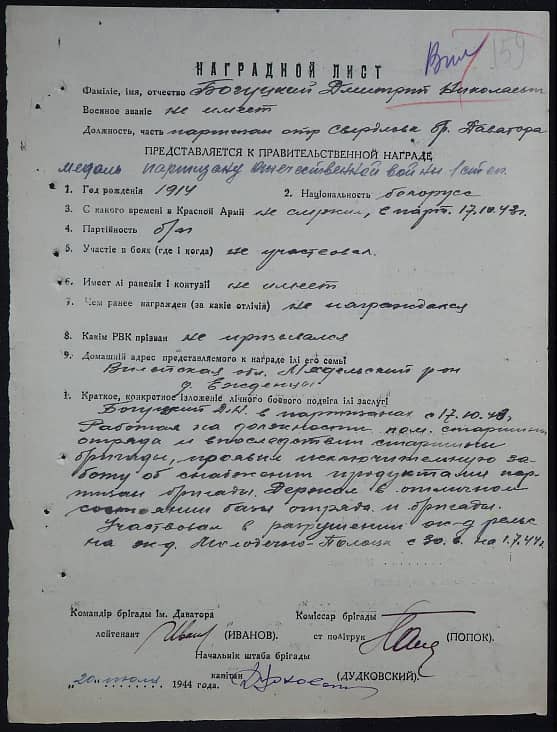 Вил 159
НАГРАДНОЙ ЛИСТ
Фаміліе, імя, отчество Богуцкий Дмитрий Николаевич
Военное званіе не имеет
Должность, часть партизан отр Свердлова бр. Даватора
ПРЕДСТАВЛЯЕТСЯ К ПРАВИТЕЛЬСТВЕННОЙ НАГРАДЕ
медаль партизану Отечественной войны 1 степ.
1. Год рожденія 1914 2. Національность белорусс
3. С какого времені в Красной Арміі не служил, в парт. 17.10.43г.
4. Партійность б/п
5. Участіе в боях (где і когда) не участвовал.
6. Имеет лі раненія і контузіі не имеет
7. Чем ранее награжден (за какіе отлічія) не награждался
8. Какім РВК прізван не призывался
9. Домашній адрес представляемого к награде ілі его семьі
Вилейская обл. Мядельский р-он
д.
1. Краткое, конкретное ізложеніе лічного боевого подвіга ілі заслугі
Богуцкий Д.Н. в партизанах с 17.10.43г.
Работая на должности пом. старшины
отряда и впоследствии старшины
бригады, проявил исключительную за-
боту об снабжении продуктами пар-
тизан бригады. Держал в отличном
состоянии базы отряда и бригады.
Участвовал в разрушении ж-д рельс
на ж-д. Молодечно-Полоцк с 30.6. на 1.7.44г.
Командір брігады Ім. Даватора Коміссар брігады
лейтенант (ИВАНОВ). ст політрук (ПОПОК).
Начальнік штаба брігады
капітан (ДУДКОВСКИЙ).
„20" июля 1944 года.